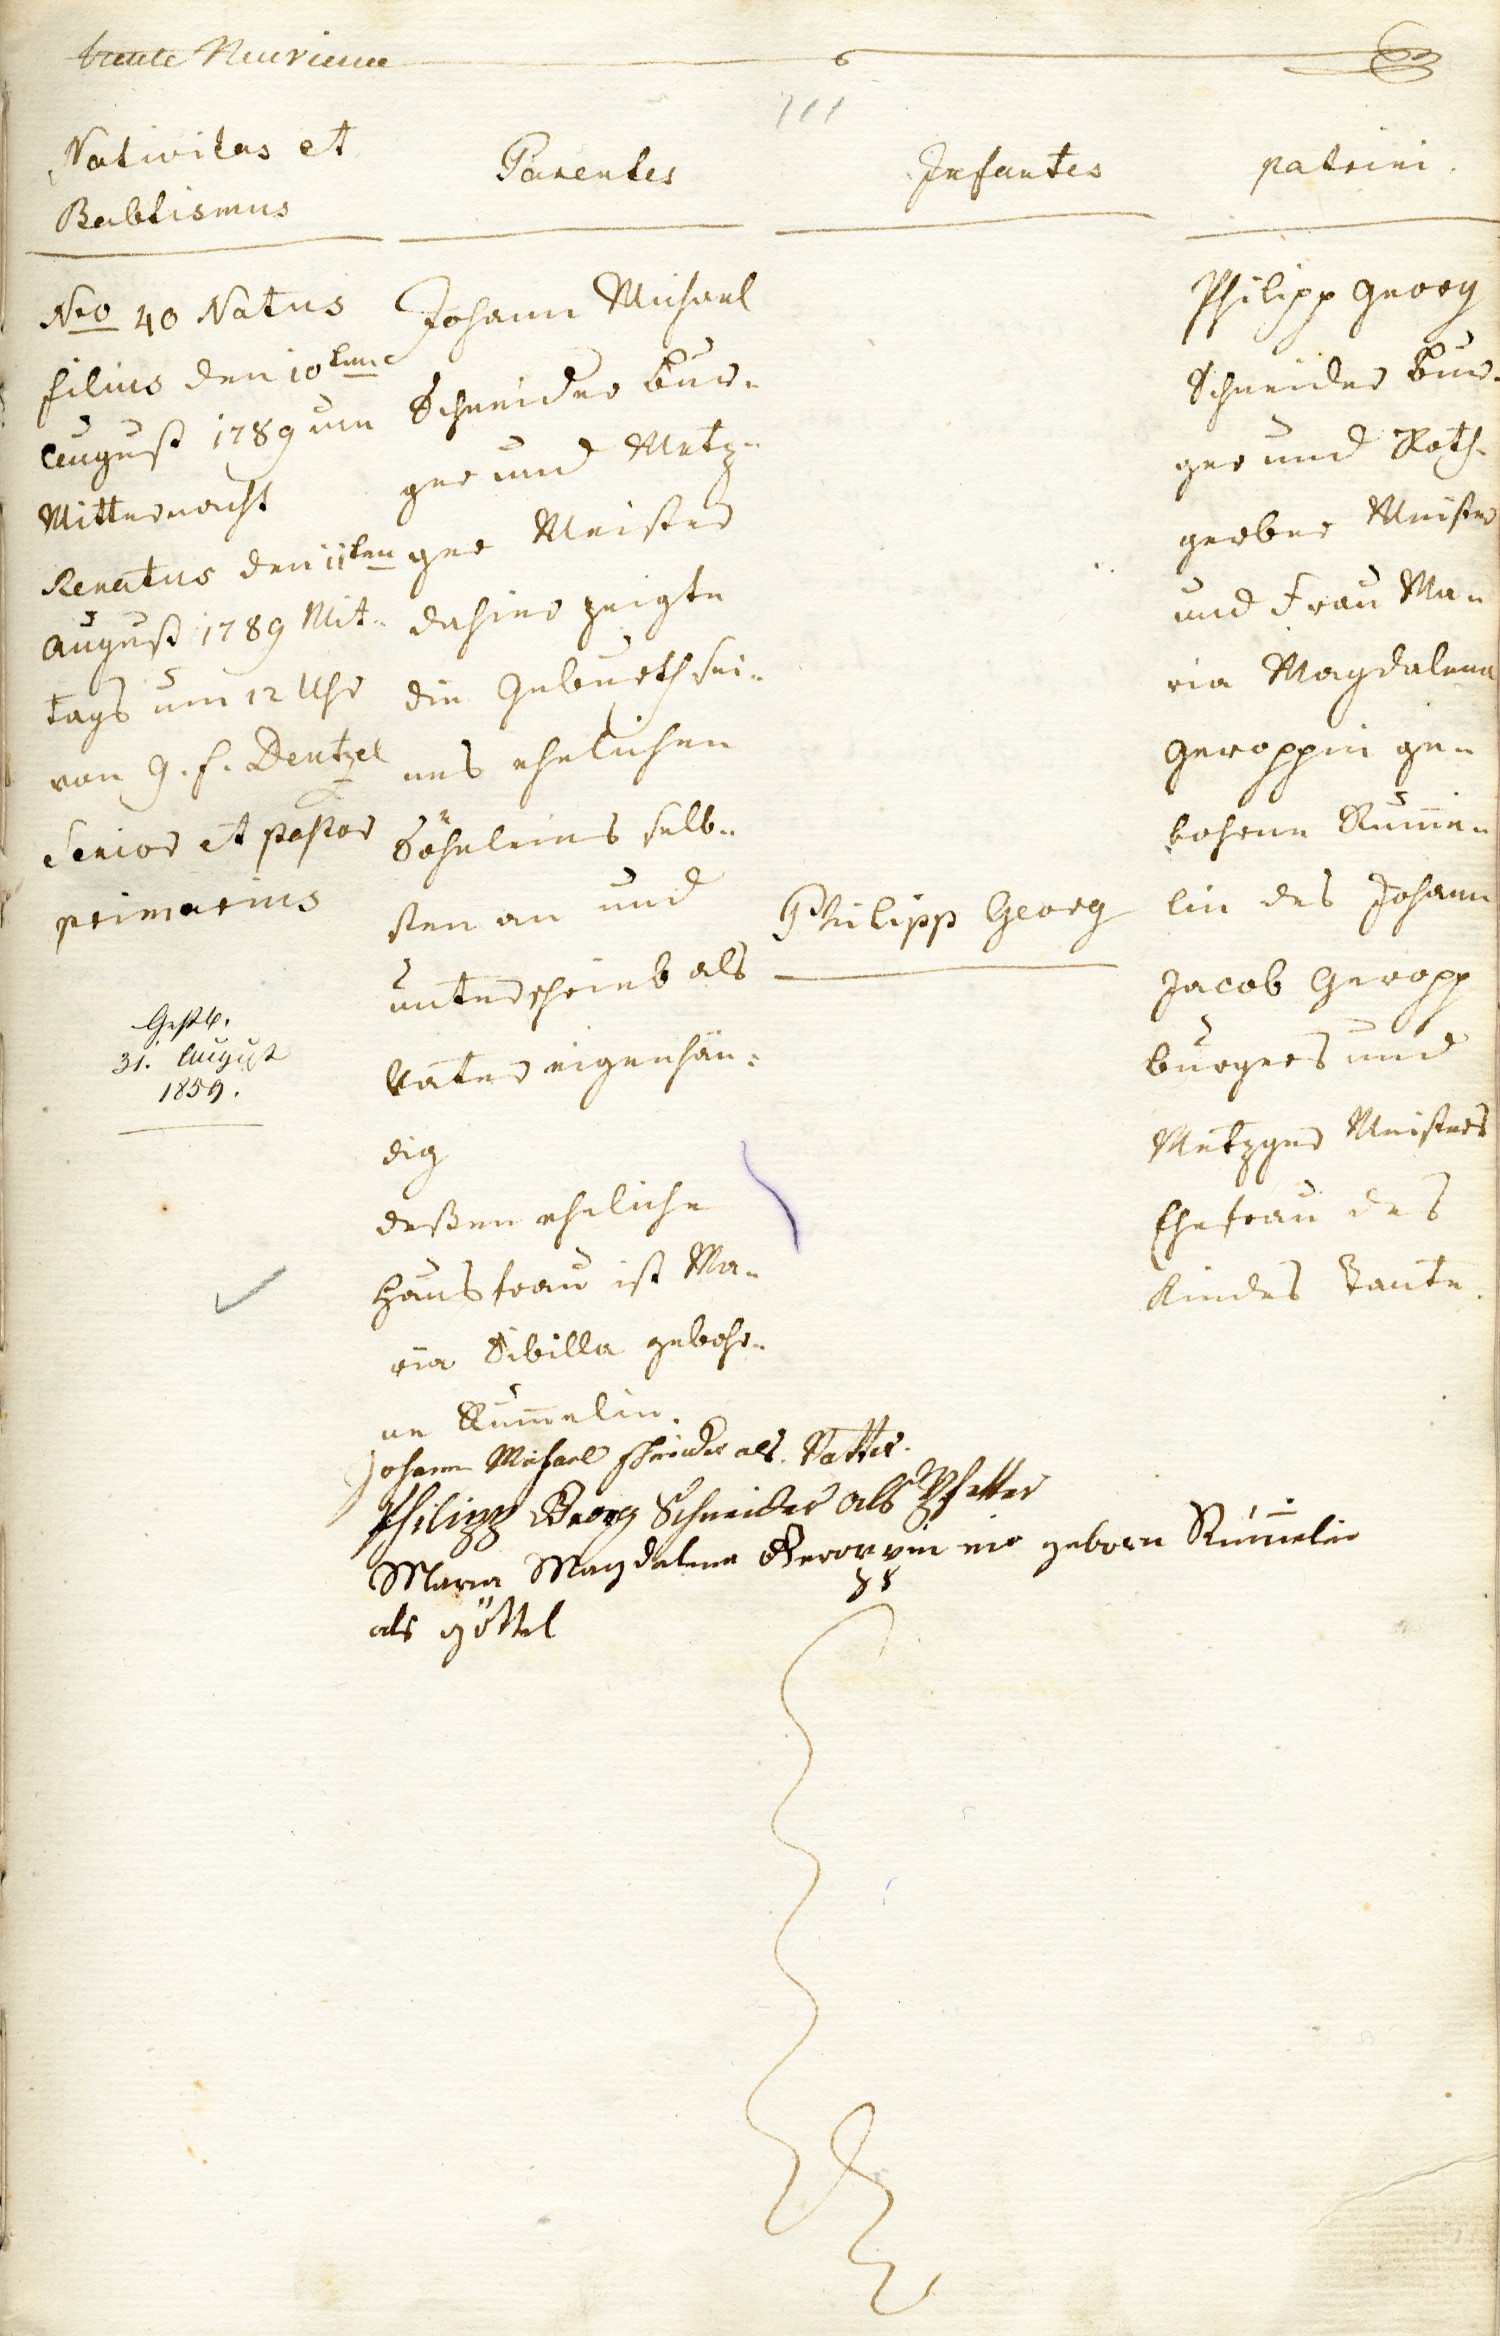 111
Nativitas et
Babtismus
Nro 40 Natus
filius den 10ten
August 1789 um
Mitternacht
Renatus den 11ten
August 1789 Mit-
tags um 12 Uhr
von G. F. Dentzel
Senior et pastor
primarius
Gestb.
31. August
1859.
Parentes
Johann Michael
Schneider Bur-
ger und Metz-
ger Meister
dahier zeigte
die Geburth sei-
nes ehelichen
Söhnleins selb-
sten an und
unterschrieb als
Vater eigenhän-
dig
deßen eheliche
Hausfrau ist Ma-
ria Sibilla gebohr-
ne Rum̄elin.
Infantes
Philipp Georg
patrini.
Philipp Georg
Schneider Bur-
ger und Roth-
gerber Meister
und Frau Ma-
ria Magdalena
Geroppin ge-
bohrne Rum̄e-
lin des Johann
Jacob Geropp
burgers und
Metzger Meisters
Ehefrau des
Kindes Tante.
Johann Michael Schneider als Vatter.
Philipp Georg Schneider als Pfetter
Maria Magdalena Geroppin geborn Rum̄elin
als göttel